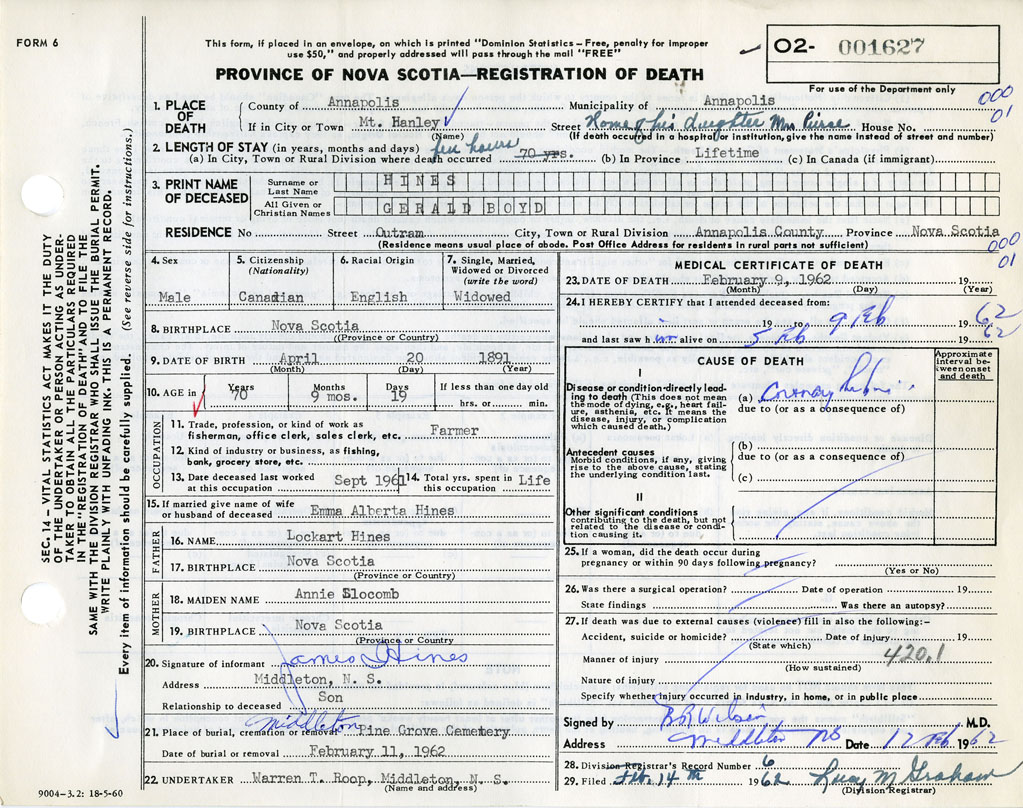 FORM 6
This form, if placed in an envelope, on which is printed "Dominion Statistics – Free, penalty for improper
use $50," and properly addressed will pass through the mail "FREE"
O2- 001627
PROVINCE OF NOVA SCOTIA—REGISTRATION OF DEATH
For use of the Department only
000
01
1. PLACE OF DEATH
County of Annapolis Municipality of Annapolis
If in City or Town Mt. Hanley Street Home of his daughter Mrs House No.
(Name) (If death occurred in a hospital or institution, give the name instead of street and number)
2. LENGTH OF STAY (in years, months and days) few hours
(a) In City, Town or Rural Division where death occurred 70 yrs. (b) In Province Lifetime (c) In Canada (if immigrant)
3. PRINT NAME OF DECEASED
Surname or Last Name HINES
All Given or Christian Names GERALD BOYD
RESIDENCE No Street Outram City, Town or Rural Division Annapolis County Province Nova Scotia
(Residence means usual place of abode. Post Office Address for residents in rural parts not sufficient)
000
01
4. Sex
Male
5. Citizenship (Nationality)
Canadian
6. Racial Origin
English
7. Single, Married, Widowed or Divorced (write the word)
Widowed
8. BIRTHPLACE Nova Scotia
(Province or Country)
9. DATE OF BIRTH April 20 1891
(Month) (Day) (Year)
10. AGE in Years 70 Months 9 mos. Days 19 If less than one day old hrs. or min.
OCCUPATION
11. Trade, profession, or kind of work as
fisherman, office clerk, sales clerk, etc. Farmer
12. Kind of industry or business, as fishing,
bank, grocery store, etc.
13. Date deceased last worked at this occupation Sept 1961
14. Total yrs. spent in this occupation Life
15. If married give name of wife
or husband of deceased Emma Alberta Hines
FATHER
16. NAME Lockart Hines
17. BIRTHPLACE Nova Scotia
(Province or Country)
MOTHER
18. MAIDEN NAME Annie Slocomb
19. BIRTHPLACE Nova Scotia
(Province or Country
20. Signature of informant James I Hines
Address Middleton, N. S.
Relationship to deceased Son
Middleton
21. Place of burial, cremation or removal Pine Grove Cemetery
Date of burial or removal February 11, 1962
22. UNDERTAKER Warren T. Roop, Middleton, N. S.
(Name and address)
9004-3.2: 18-5-60
MEDICAL CERTIFICATE OF DEATH
23. DATE OF DEATH February 9, 1962 19
(Month) (Day) (Year)
24. I HEREBY CERTIFY that I attended deceased from:
19 to 9 Feb 19 62
and last saw h im alive on 5 Feb 19 62
CAUSE OF DEATH
Approximate interval between onset and death
I
Disease or condition directly leading to death (This does not mean
the mode of dying, e.g., heart failure, asthenia, etc. It means the
disease, injury, or complication
which caused death.)
(a) Coronary
due to (or as a consequence of)
Antecedent causes
Morbid conditions, if any, giving
rise to the above cause, stating
the underlying condition last.
(b)
due to (or as a consequence of)
(c)
II
Other significant conditions
contributing to the death, but not
related to the disease or condition causing it.
25. If a woman, did the death occur during
pregnancy or within 90 days following pregnancy?
(Yes or No)
26. Was there a surgical operation? Date of operation 19
State findings Was there an autopsy?
27. If death was due to external causes (violence) fill in also the following:–
Accident, suicide or homicide? Date of injury 19
(State which)
Manner of injury 420.1
(How sustained)
Nature of injury
Specify whether injury occurred in industry, in home, or in public place
Signed by B R Wilson M.D.
Address Middleton NS Date 12 Feb 1962
28. Division Registrar's Record Number 6
29. Filed Feb. 14 th 1962 Lucy M Graham
(Division Registrar)
SEC. 14 – VITAL STATISTICS ACT MAKES IT THE DUTY
OF THE UNDERTAKER OR PERSON ACTING AS UNDERTAKER TO OBTAIN ALL THE PARTICULARS REQUIRED
IN THE "REGISTRATION OF DEATH" AND TO FILE THE
SAME WITH THE DIVISION REGISTRAR WHO SHALL ISSUE THE BURIAL PERMIT.
WRITE PLAINLY WITH UNFADING INK. THIS IS A PERMANENT RECORD.
Every item of information should be carefully supplied. (See reverse side for instructions.)